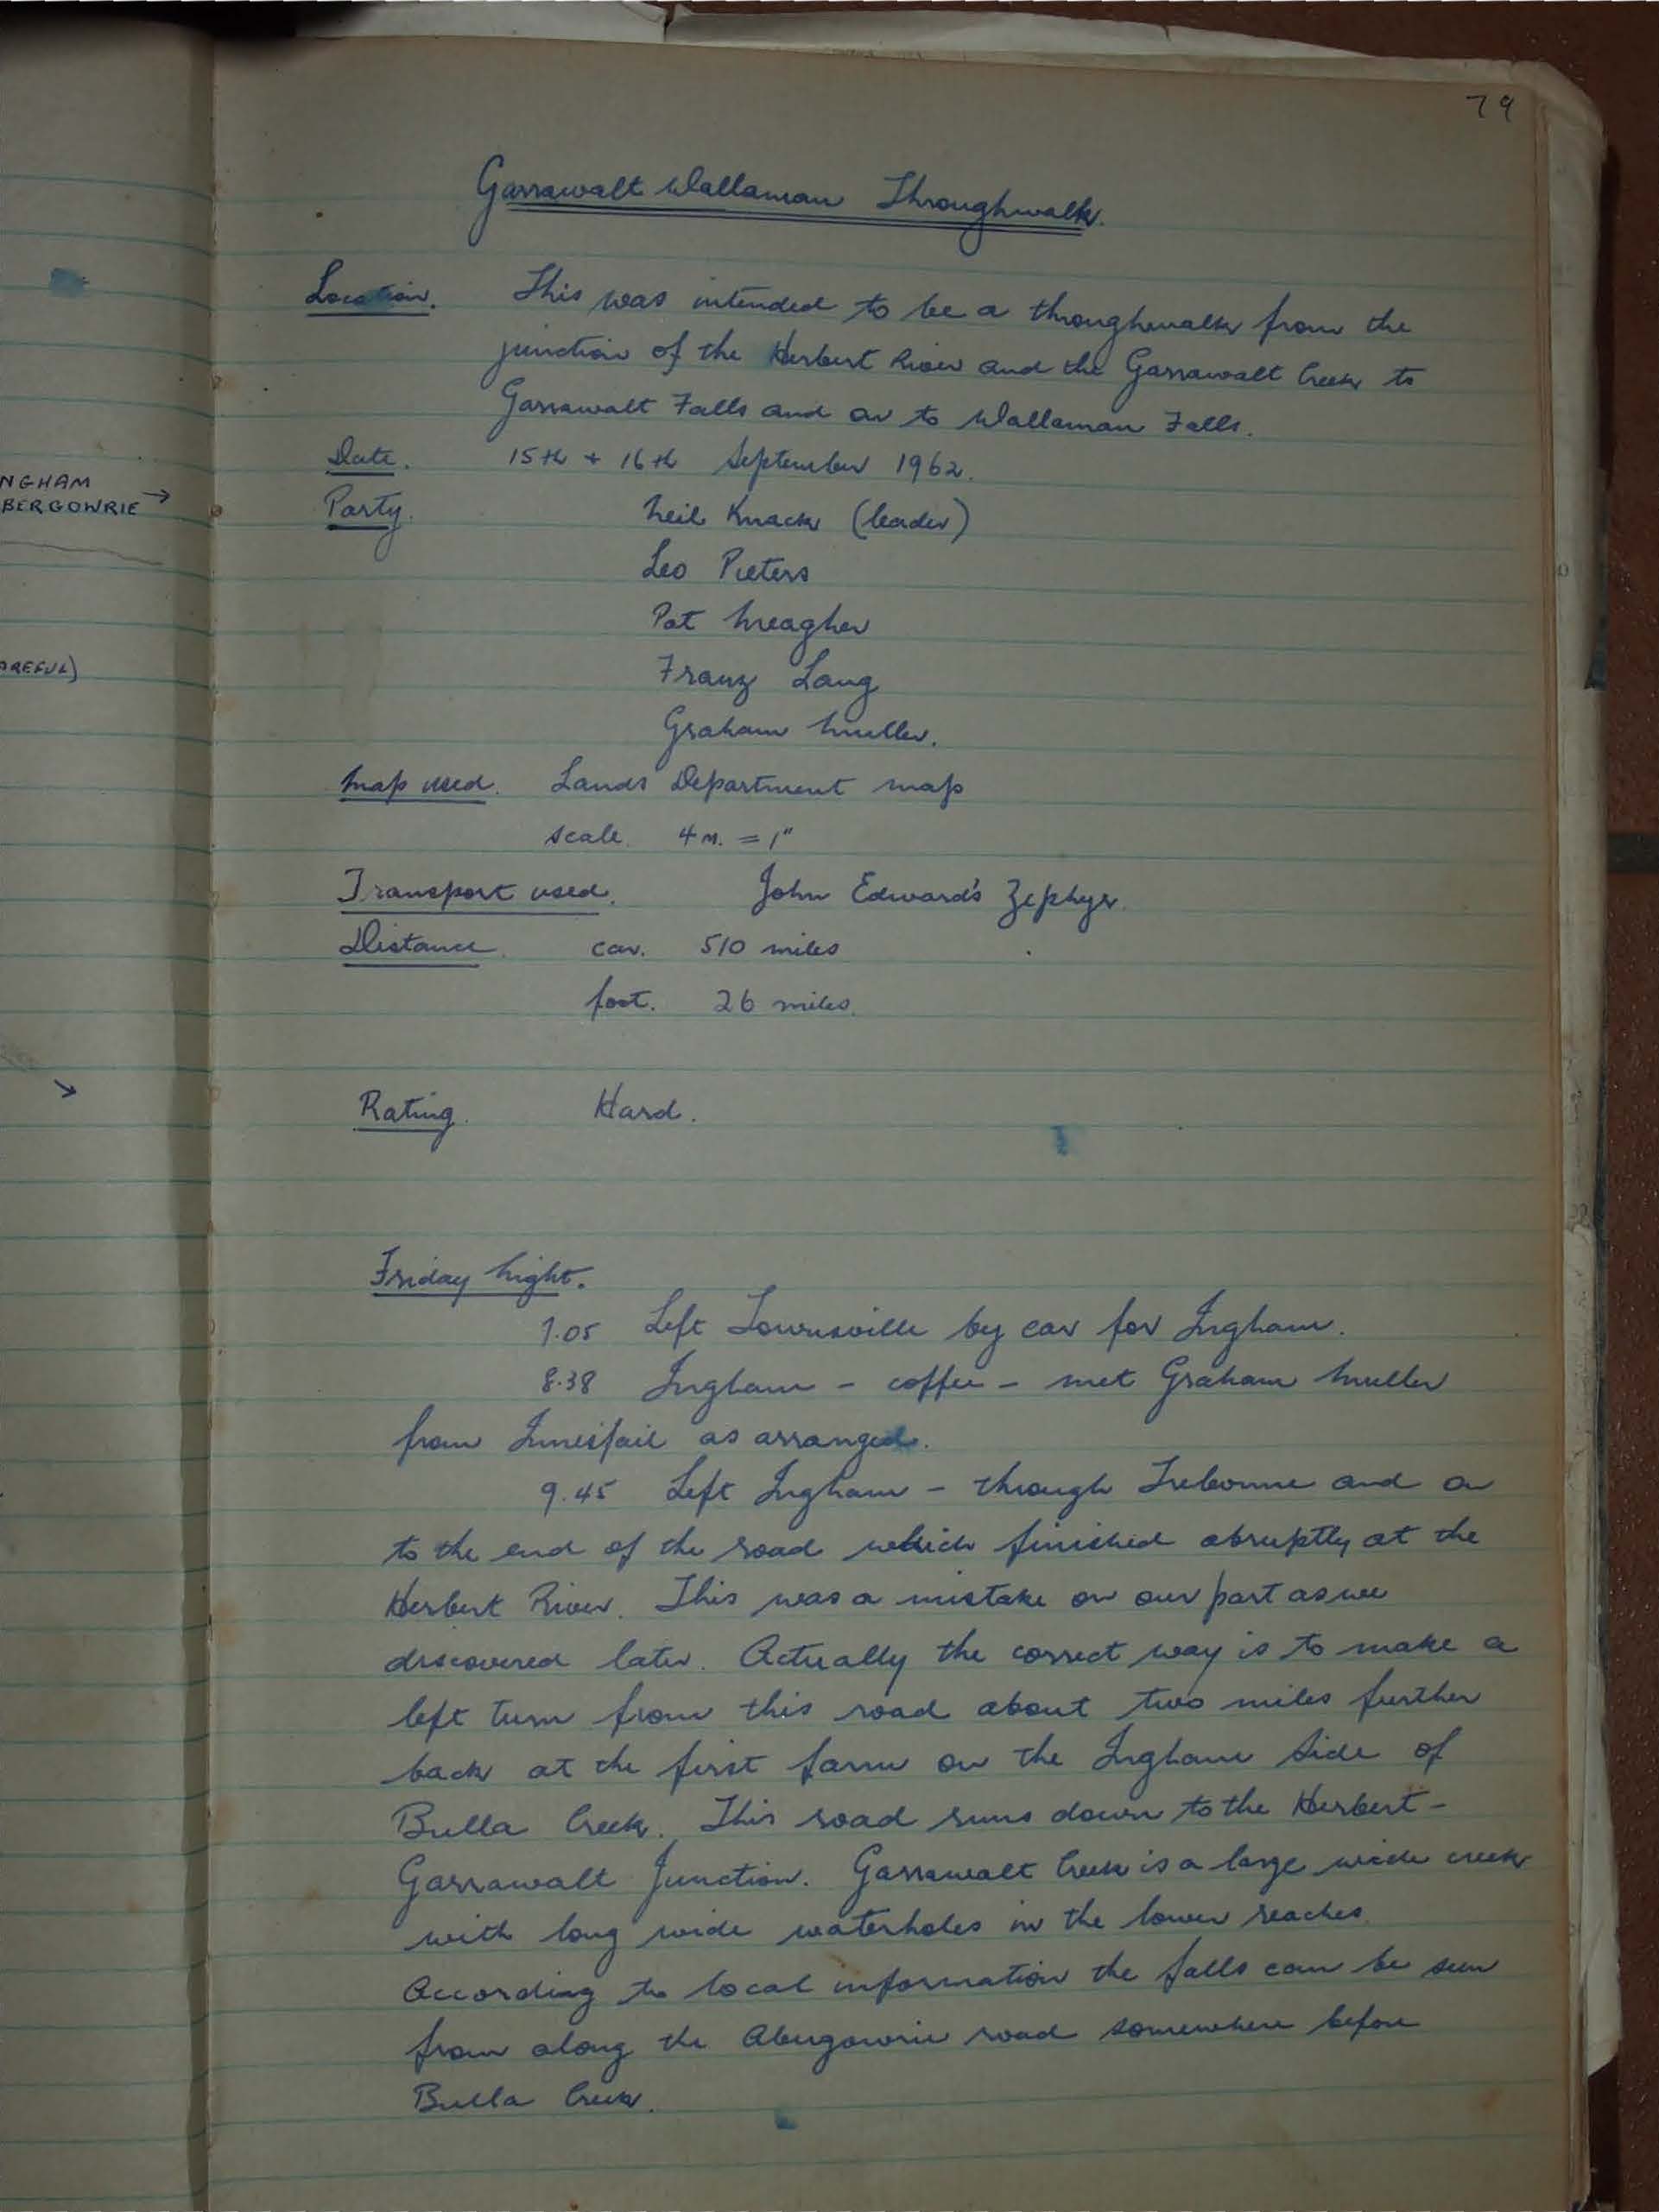 79
Garrawalt Wallaman Throughwalk.
Location. This was intended to be a throughwalk from the
junction of the Herbert River and the Garrawalt Creek to
Garrawalt Falls and on to Wallaman Falls.
Date. 15th + 16th September 1962.
NGHAM
BERGOWRIE →
Party. Neil Knack (leader)
Leo Pieters
Pat Meagher
AREFUL)
Franz Lang
Graham Muller.
Map used. Lands Department map
scale. 4 m. = 1"
Transport used. John Edward's Zephyr.
Distance. car. 510 miles
foot. 26 miles.
Rating. Hard.
Friday Night.
7.05 Left Townsville by car for Ingham.
8.38 Ingham - coffee - met Graham Muller
from Innisfail as arranged.
9.45 Left Ingham - through Trebonne and on
to the end of the road which finished abruptly at the
Herbert River. This was a mistake on our part as we
discovered later. Actually the correct way is to make a
left turn from this road about two miles further
back at the first farm on the Ingham side of
Bulla Creek. This road runs down to the Herbert-
Garrawalt Junction. Garrawalt Creek is a large wide creek
with long wide waterholes in the lower reaches.
According to local information the falls can be seen
from along the Abergowrie road somewhere before
Bulla Creek.